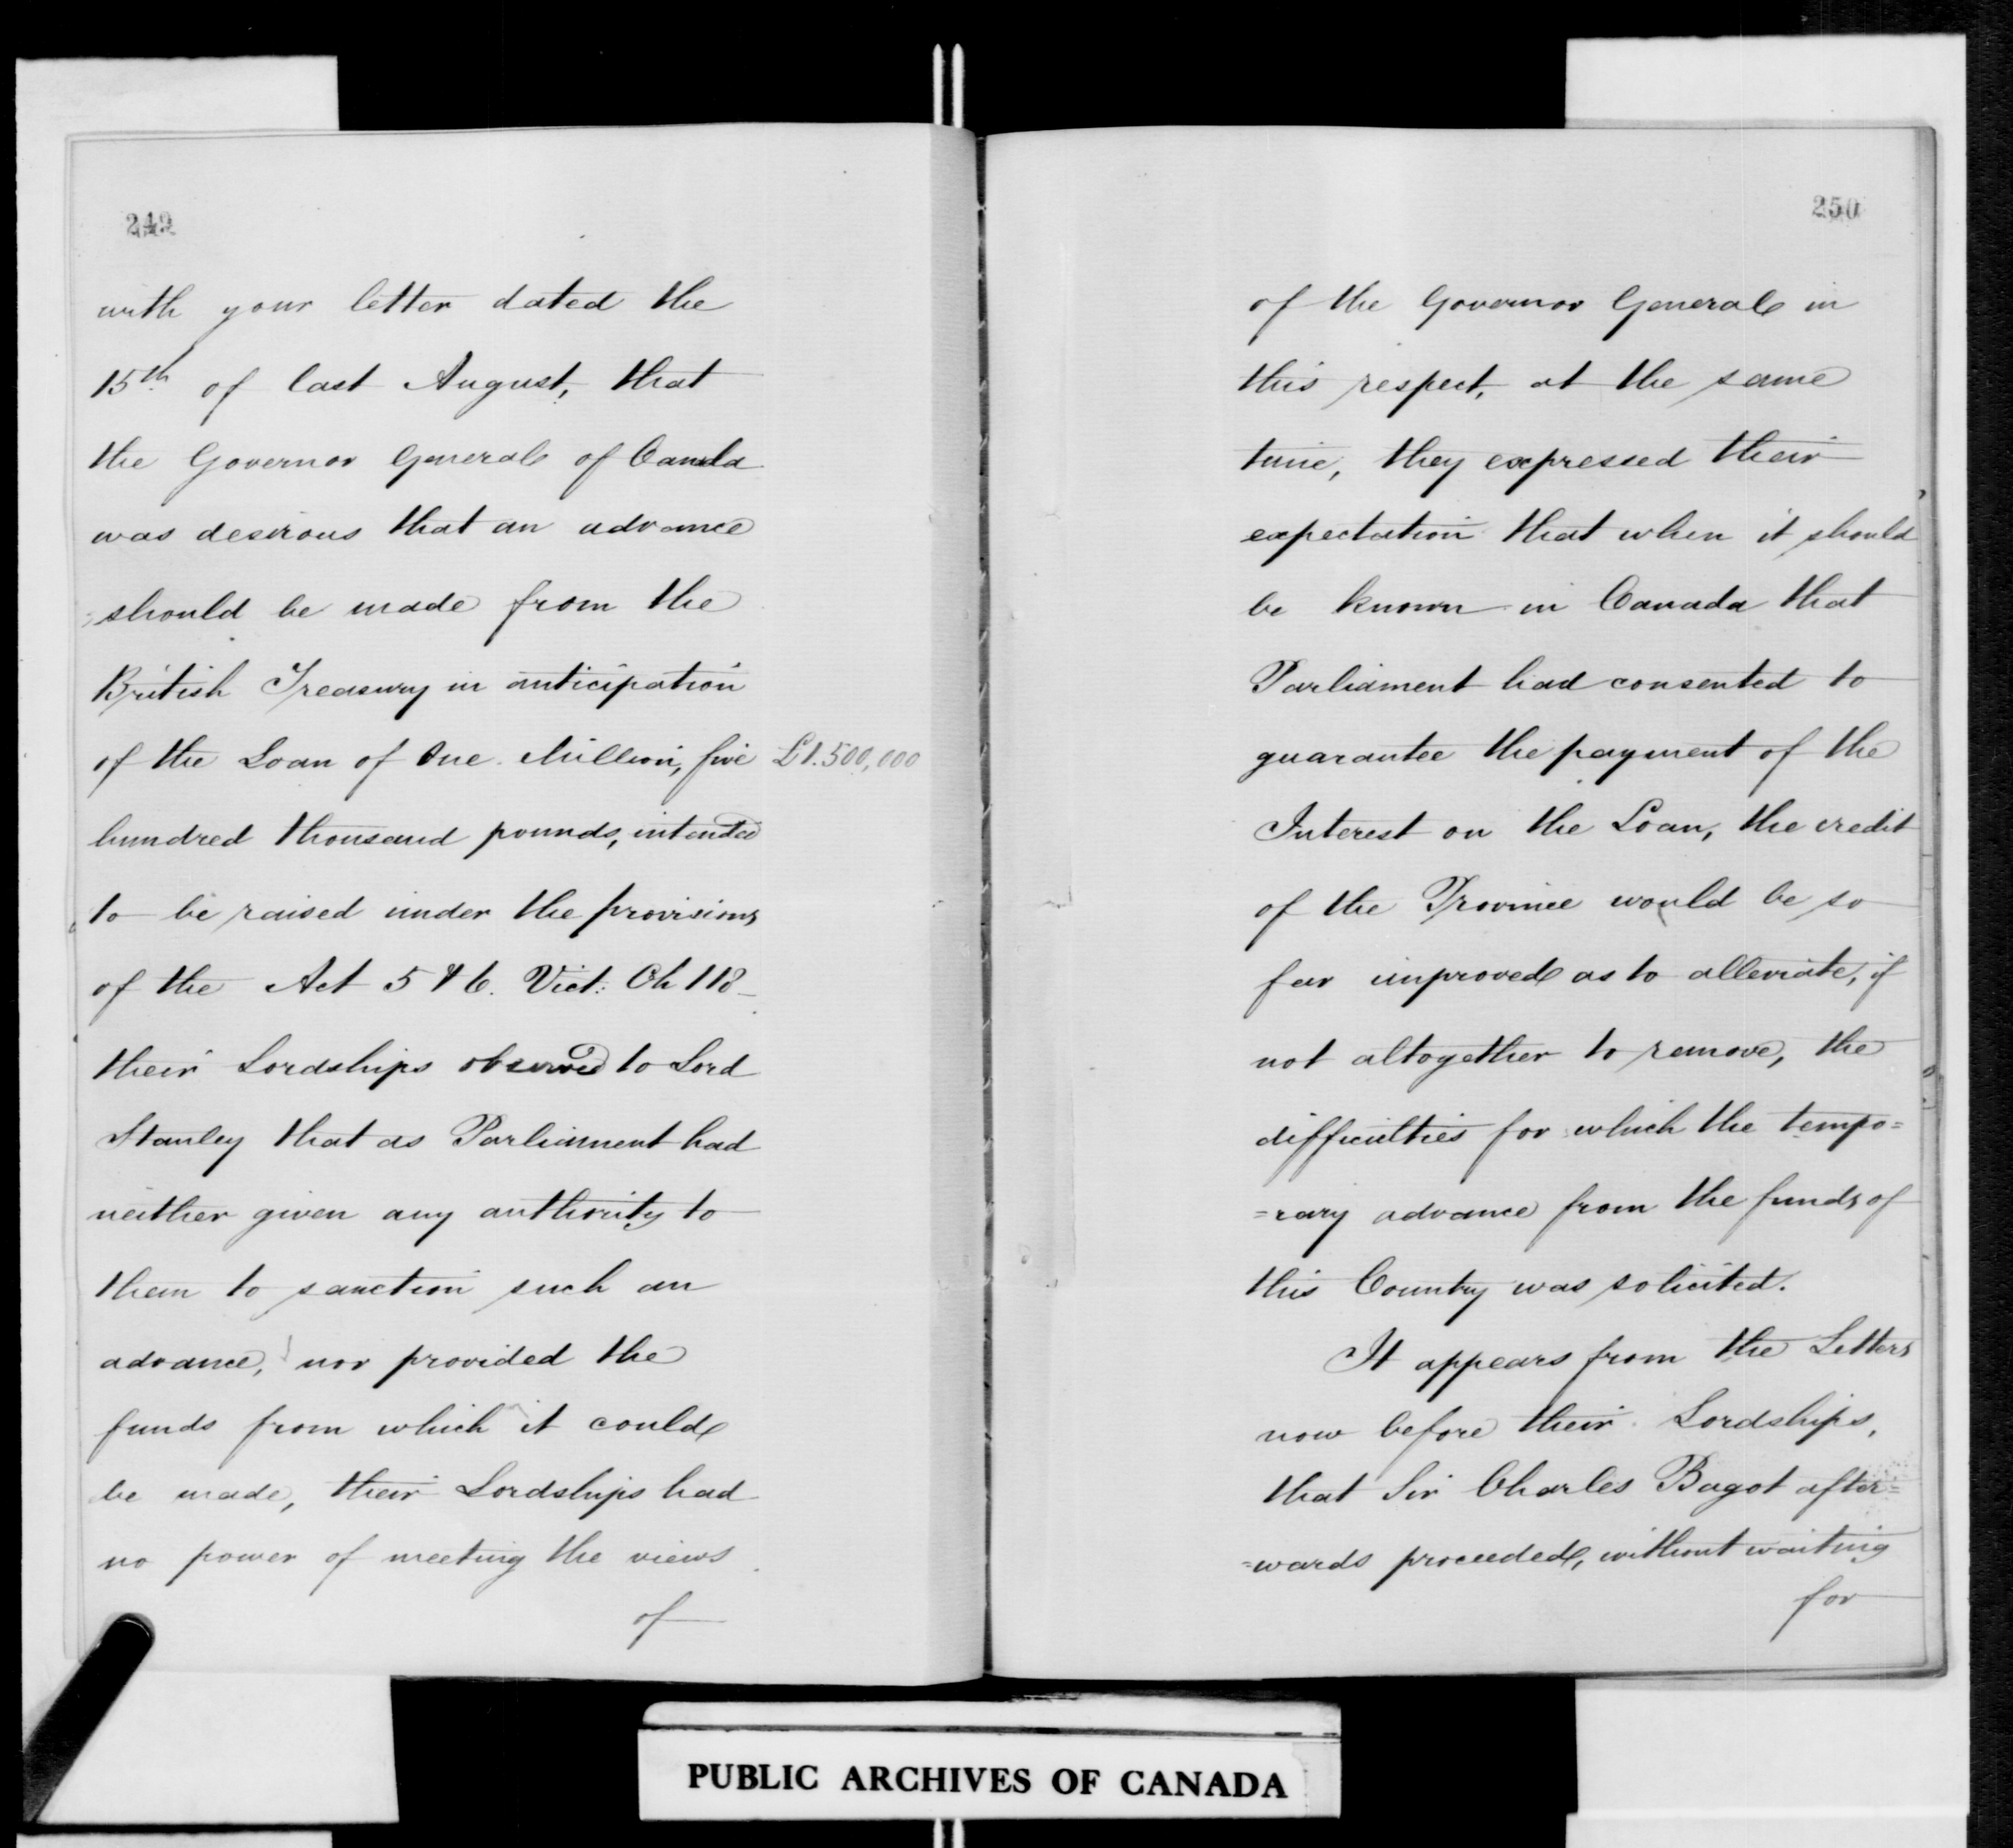 249
with your letter dated the
15th of last August, that
the Governor General of Canada
was desirous that an advance
should be made from the
British Treasury in anticipation
of the Loan of One Million, five £1.500,000
hundred thousand pounds, intended
to be raised under the provisions
of the Act 5 & 6. Vict: Ch 118
their Lordships observed to Lord
Stanley that as Parliament had
neither given any authority to
them to sanction such an
advance, nor provided the
funds from which it could
be made, their Lordships had
no power of meeting the views
of
250
of the Governor General in
this respect, at the same
time, they expressed their
expectation that when it should
be known in Canada that
Parliament had consented to
guarantee the payment of the
Interest on the Loan, the credit
of the Province would be so
far improved as to alleviate, if
not altogether to remove, the
difficulties for which the tempo=
=rary advance from the funds of
this Country was solicited.
It appears from the Letters
now before their Lordships,
that Sir Charles Bagot after=
=wards proceeded, without waiting
for
PUBLIC ARCHIVES OF CANADA